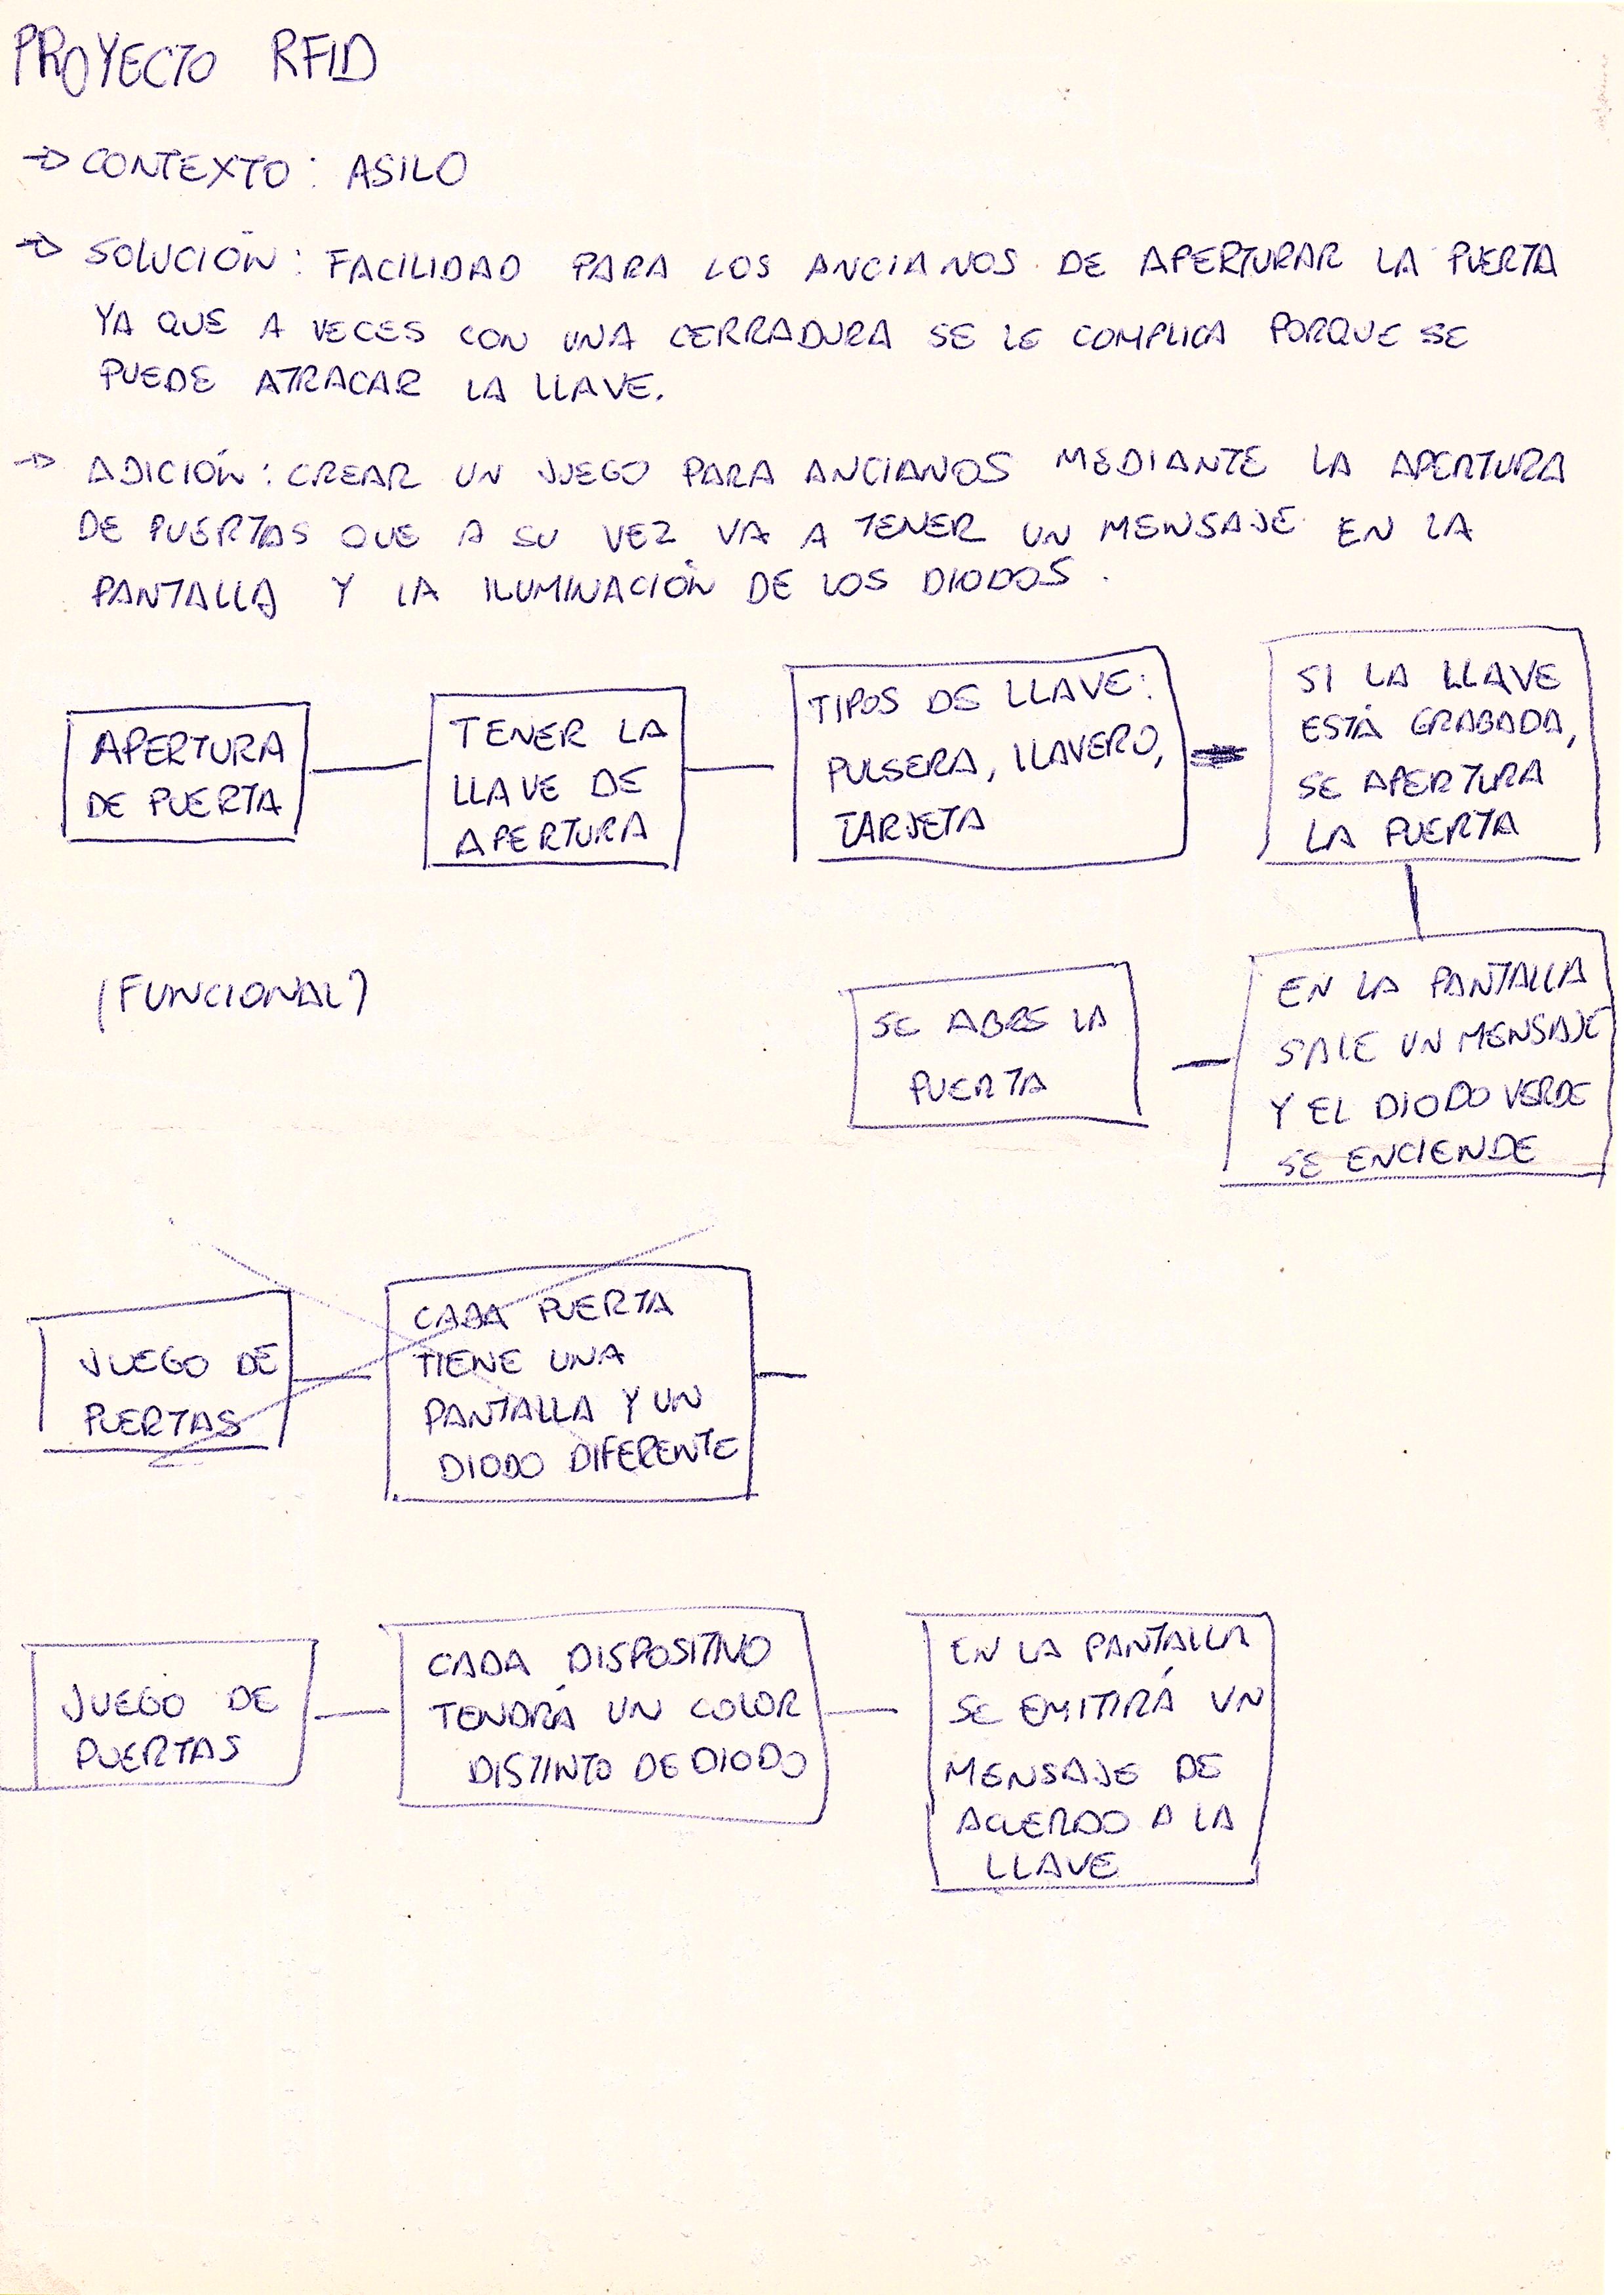 PROYECTO RFID
→ CONTEXTO: ASILO
→ SOLUCIÓN: FACILIDAD PARA LOS ANCIANOS DE APERTURAR LA PUERTA
YA QUE A VECES CON UNA CERRADURA SE LE COMPLICA PORQUE SE
PUEDE ATRACAR LA LLAVE.
→ ADICIÓN: CREAR UN JUEGO PARA ANCIANOS MEDIANTE LA APERTURA
DE PUERTAS QUE A SU VEZ VA A TENER UN MENSAJE EN LA
PANTALLA Y LA ILUMINACIÓN DE LOS DIODOS.
APERTURA
DE PUERTA
TENER LA
LLAVE DE
APERTURA
TIPOS DE LLAVE:
PULSERA, LLAVERO,
TARJETA
SI LA LLAVE
ESTÁ GRABADA,
SE APERTURA
LA PUERTA
(FUNCIONAL)
SE ABRE LA
PUERTA
EN LA PANTALLA
SALE UN MENSAJE
Y EL DIODO VERDE
SE ENCIENDE
JUEGO DE
PUERTAS
CADA PUERTA
TIENE UNA
PANTALLA Y UN
DIODO DIFERENTE
JUEGO DE
PUERTAS
CADA DISPOSITIVO
TENDRÁ UN COLOR
DISTINTO DE DIODO
EN LA PANTALLA
SE EMITIRÁ UN
MENSAJE DE
ACUERDO A LA
LLAVE